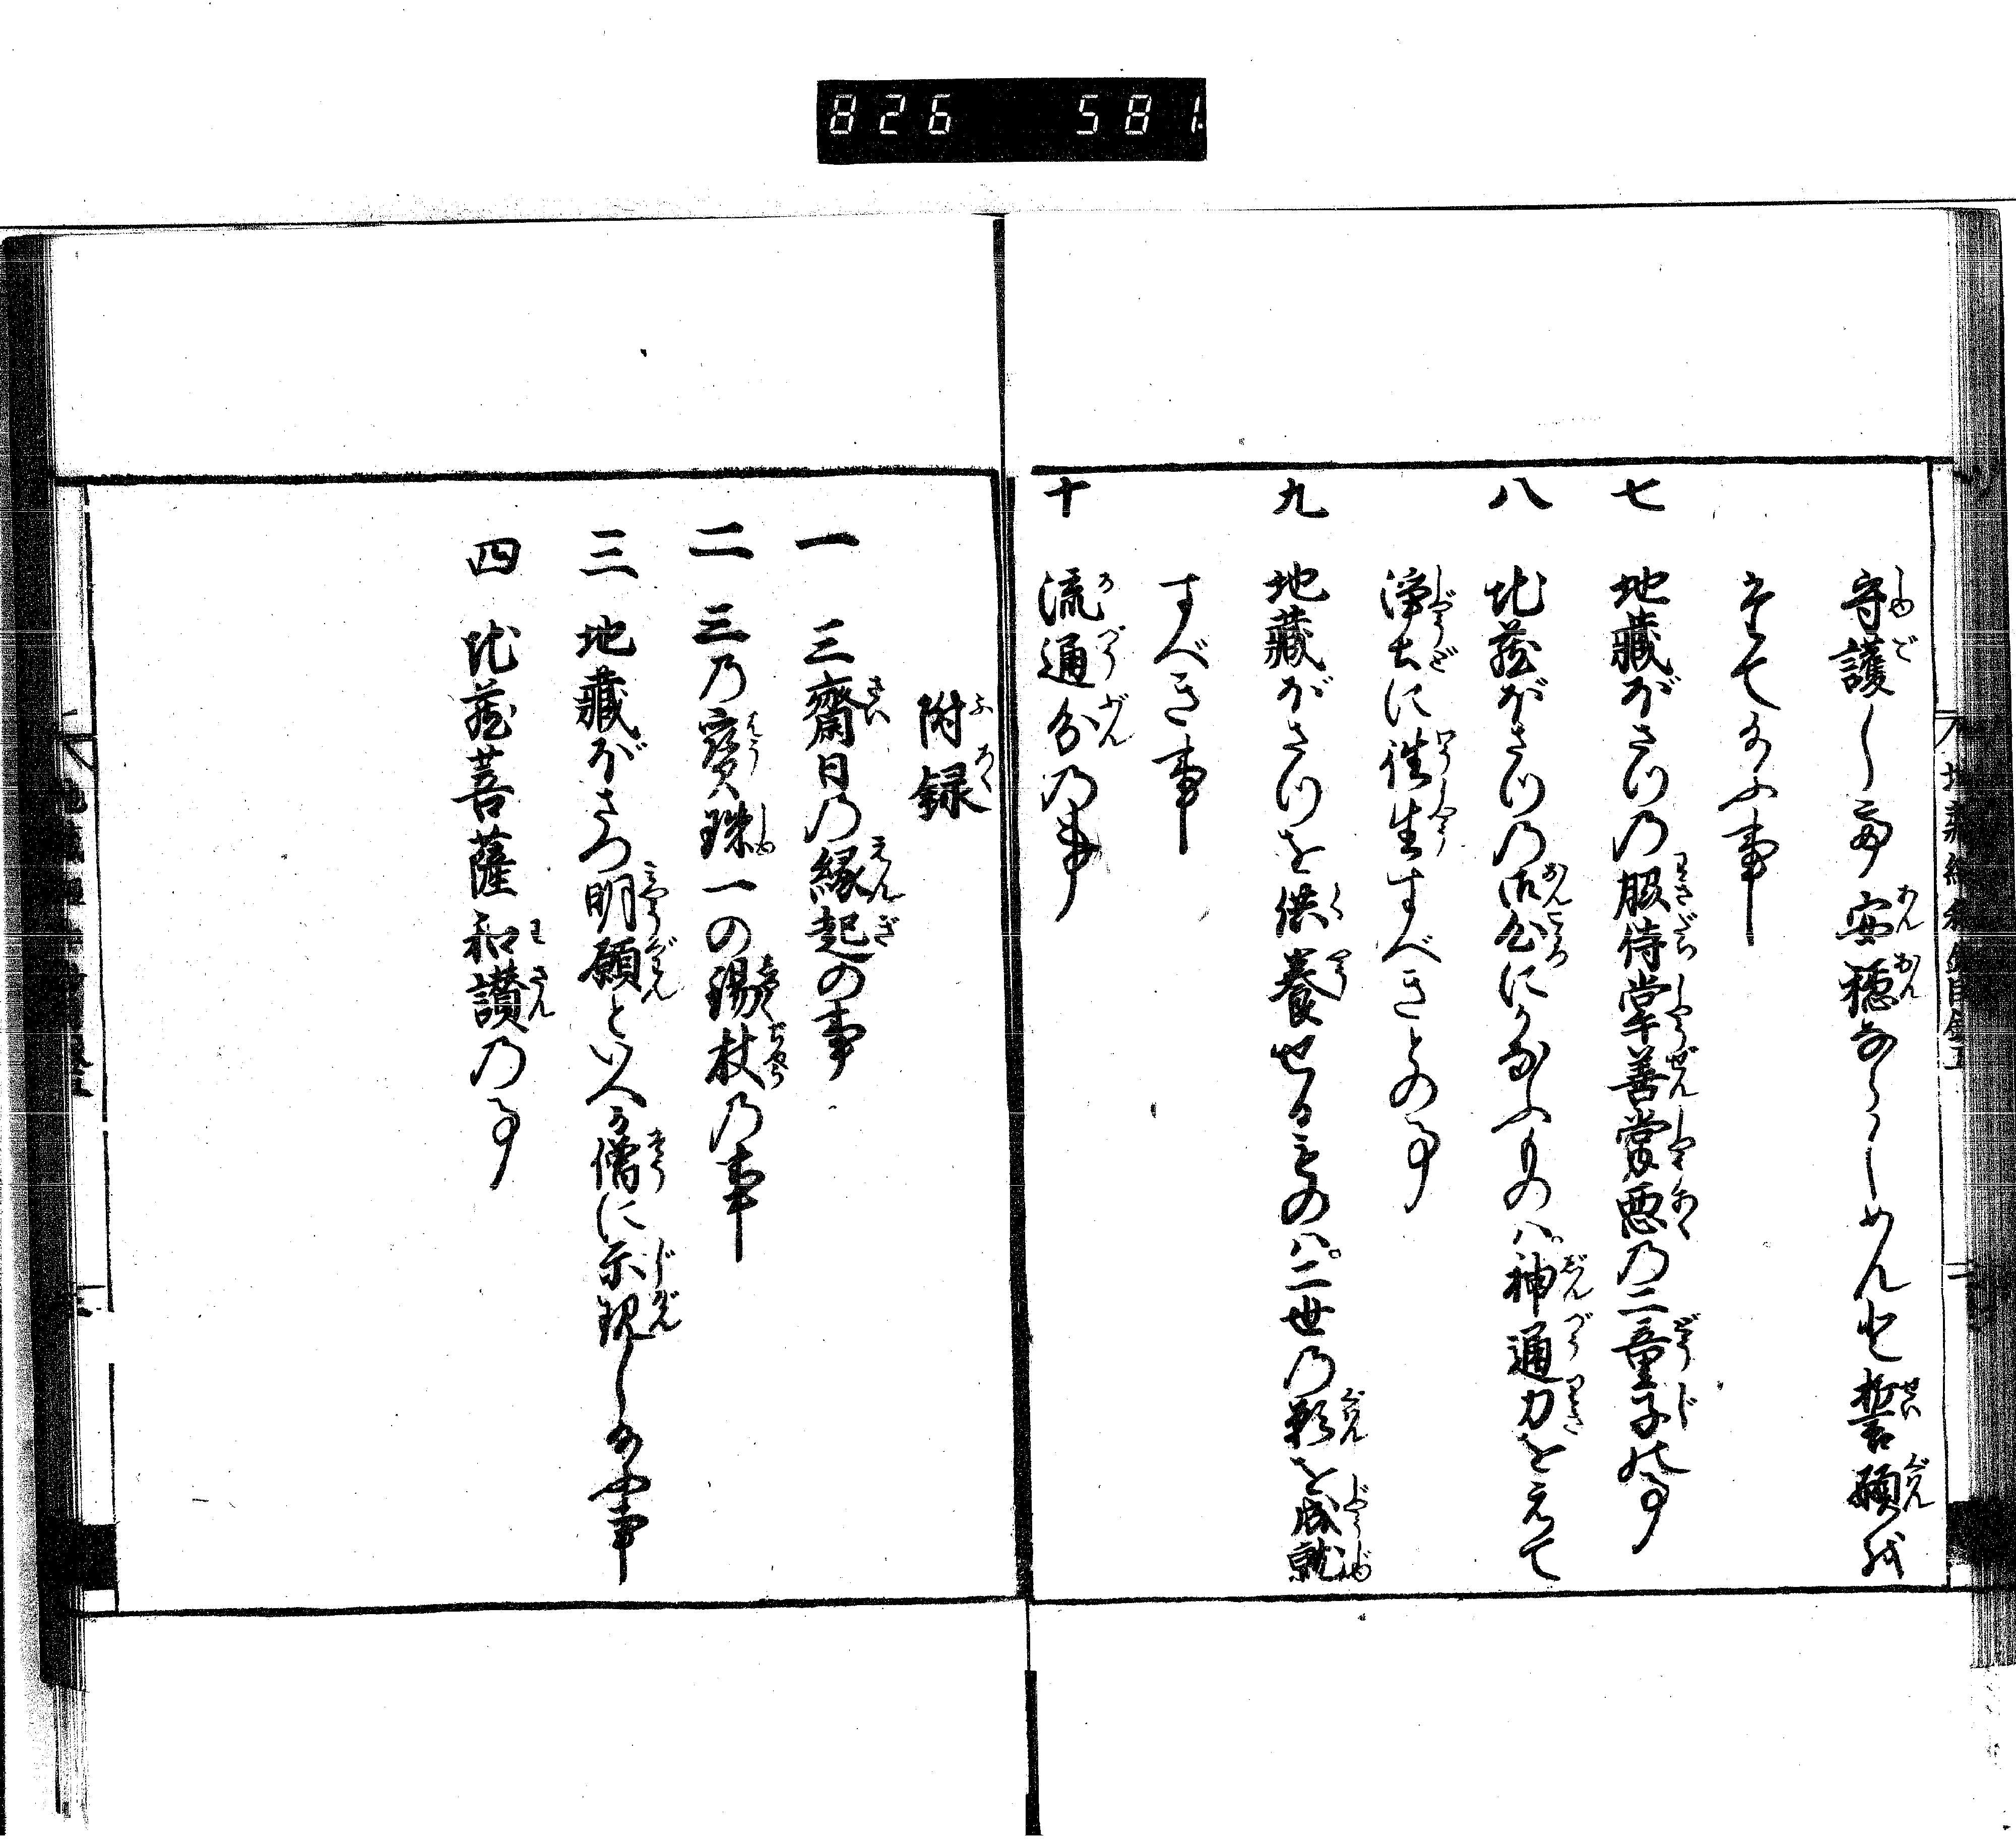 826 581
守護して安穏ならしめんと誓願を
たて給ふ事
七 地藏ぼさつの服侍掌善掌悪の二童子の事
八 地蔵ぼさつの御名にかなふものハ神通力をえて
浄土に往生すべきとの事
九 地藏ぼさつを供養せるものハ二世の願を成就
すべき事
十 流通分の事
附録
一 三齋日の縁起の事
二 三の寳珠一の錫杖の事
三 地藏ぼさつ明願といへる僧に示現し給ふ事
四 地蔵菩薩和讃の事